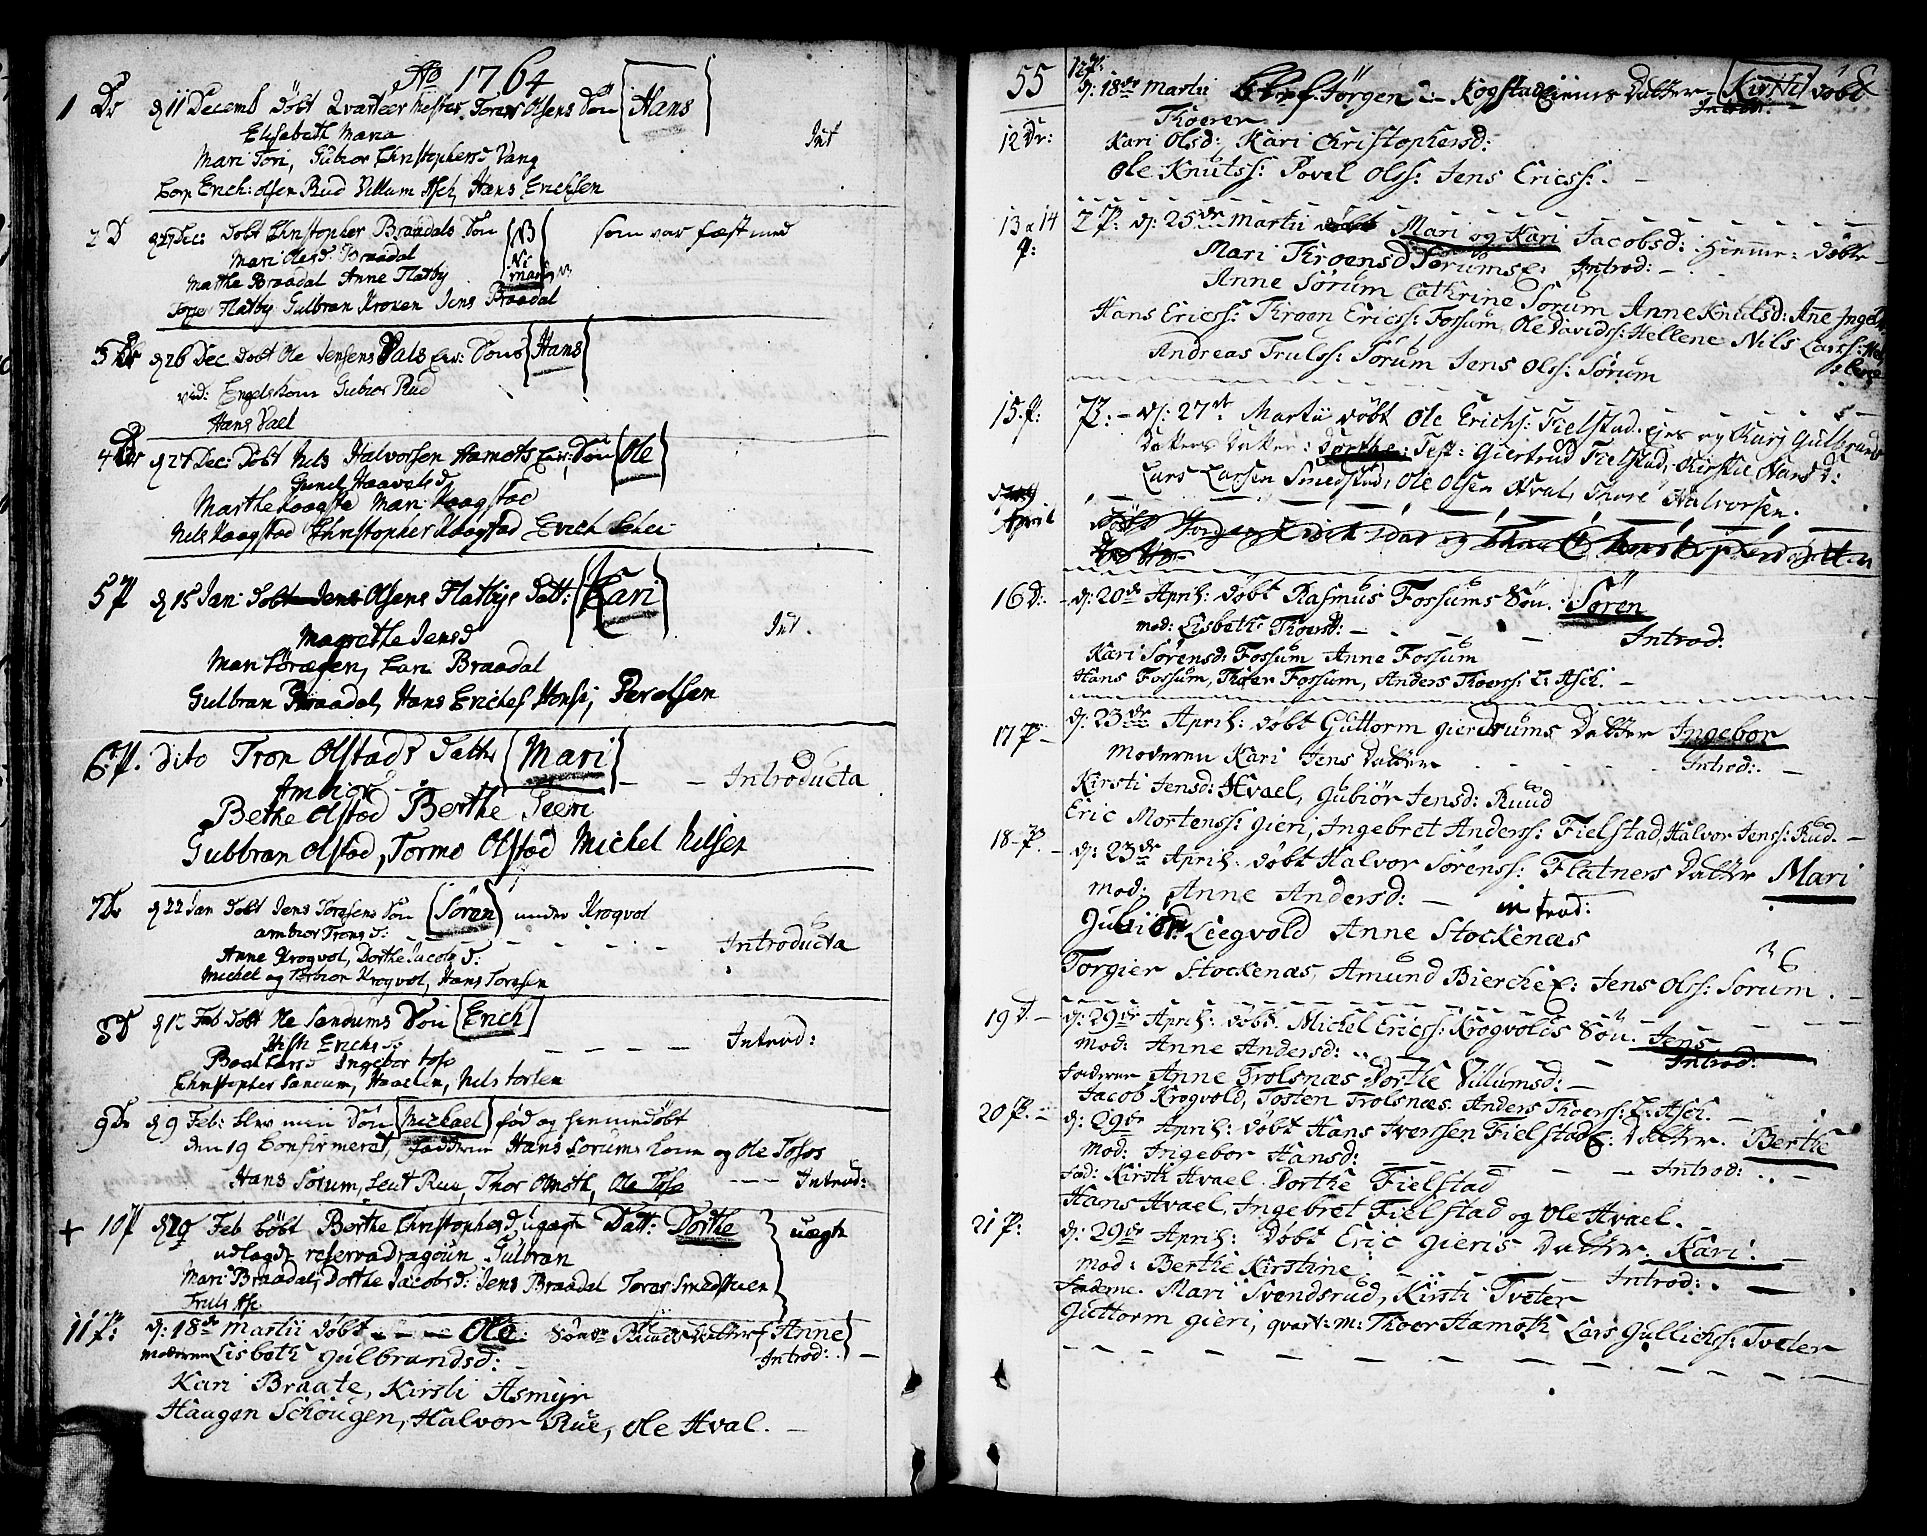 Ao 1764
1 Dr d 11 Decemb döbt Qvarteer Mester Tores Olsens Sön Hans
Elisabeth Maria
Int
Mari Tori, Gubior Christophersd Vang
Corp Erich: olsen Rud Villum Asch, Hans Erichsen
2 D d 27 Dec: Dobt Christopher Braadals Sön som var fæst med
Mari Olesd. Braadal
Marthe Braadal Anne Flatby
Flatby Gulbran Kroken Jens Braadal
3 Dr d 26 Dec Dobt Ole Jensens Vals Sön Hans
vid: Gubior Rud
Hans Vael
4 Dr d 27 Dec: Dobt Nils Halvorsen Hamots Sön Ole
Gunil Haavelsd
Marthe Mari Haagstad
Nils Haagstad Christopher Haagstad Erich
5 P d 15 Jan: Dobt Jens Olsens Flatbys Datt: Kari
Magrethe Jensd
Int.
Mari Kari Braadal
Gulbran Braadal, Hans Erichs
6 P. Dito Tron Olstads Datt: Mari
Ambior - - Introducta
Bethe Olstad Berthe Tieri
Gulbran Olstad, Tormo Olstad Michel Nilsen
7 Dr d 22 Jan Dobt Jens Toresens Sön Sören under Krogvol
ambior Trons d: - - Introducta
Anne Krogvol, Dorthe Jacobs d:
Michel og Torbior Krogvol, Hans Toresen
8 D d 12 Feb Dobt Ole Sandums Sön Erich
Erichs d: - - - Introd:
Ingebor Toso
Christopher Sandum, Nils Torsen
9 Dr d 9 Feb: blev min Sön Michael fød og hiemmedöbt
den 19 Confirmeret, fadderne Hans Sorums kone og Ole Tosos
Hans Sorum, Rue, Thor Ole Toso --- Introd:
+ 10 P d 19 Feb Döbt Berthe Christophersd, uægte Datt: Dorthe uægte
udlagde reservedragoun Gulbran
Mari Braadal, Dorthe Jacobsd: Jens Braadal Tores Smedstuen
Truls
11 P: d: 18de Martii döbt - - - Ole Anne
moderen Lisbeth Gulbrandsd: - Introd: -
Kari Braate, Kirsti Asmyr
Haagen Schougen, Halvor Rue, Ole Hval. -
55 12 P: d: 18de Martii Jörgen Datter Kirsti döbt
Thoeren Introd:
12 Dr: Kari Olsd: Kari Christophersd:
Ole Knuts: Povel Ols: Jens Erics: -
13 a 14 P: 2 P: d: 25de Martii döbt Mari og Kari Jacobsd: hiemme: döbte
Mari Thoensd Sörums Introd: -
Anne Sörum Cathrine Sorum Anne Knutsd: Ane
Hans Erics: Throon Erics: Fossum, Ole Davids: Hellene Nils Lars:
Andreas Truls: Sorum Jens Ols: Sörum
15. P: d: 27de Martii döbt Ole Erichs: Fielstad.
Datter: Dorthe: Test: Giertrud Fielstad, Kirstie Hansd:
Lars Larsen Smedstad, Ole Olsen Hval, Thore Halvorsen.
April
16 D: d: 20de April: döbt Rasmus Fossums Sön. Sören
mod: Lisbeth Thoersd: - - - Introd:
Kari Sörensd: Fossum Anne Fossum
Hans Fossum, Thoer Fossum, Anders Thoers: Asch. -
17 P - d: 23de April: döbt Guttorm Gierdrums Datter Ingebor
Moderen Kari Jens Datter - - Introd: -
Kirsti Jensd: Hvael, Gubiör Jensd: Ruud
Eric Mortens: Gieri, Ingebret Anders: Fielstad, Halvor Jens: Rud. -
18 - P. - d: 23de April: döbt Halvor Sörens: Flatners Datter Mari
Mod: Anne Andersd: - introd:
Gubiör Leegvold Anne Stockenæs
Torgier Stockenæs, Amund Bierche Jens Ols: Sorum. -
19 D - d: 29de April: döbt. Michel Erics: Krogvolds Sön. Jens
mod: Anne Andersd: - - Introd:
Faderne Anne Trolsnæs Dorthe Villumsd: -
Jacob Krogvold, Tosten Trolsnæs. Anders Thoers: Asch. -
20 P. - d: 29de April: döbt Hans Iversen Fielstad Datter. Berthe
Mod: Ingebor Hansd: - - Introd: -
Fad: Kirsti Hvael Dorthe Fielstad
Hans Hvael, Ingebret Fielstad og Ole Hvael. -
21 P: d: 29de April: Döbt Eric Gieris Datter Kari: -
Mod: Berthe Kirstine. - - Introd: -
Faderne. Mari Svendsrud, Kirsti Tveter
Guttorm Gieri, qvart: M: Thoer Hamoth Lars Gullichs: Tveter